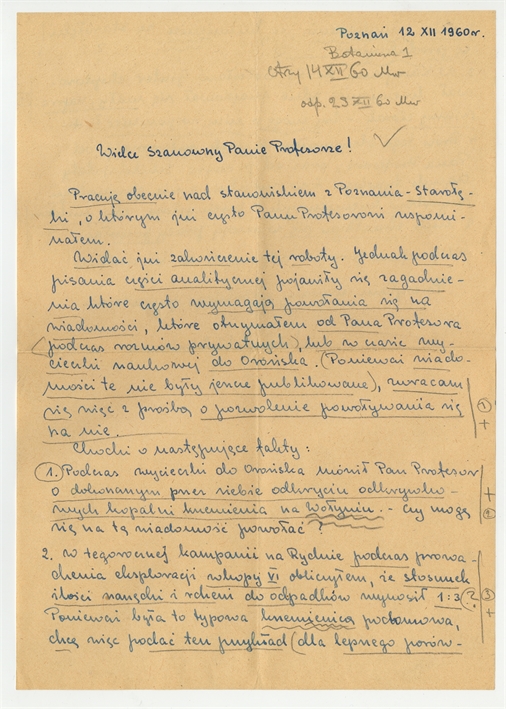 Poznań 12 XII 1960 r.
Botaniczna 1
otrzy 14 XII 60 Mw
odp. 23 XII 60 Mw
Wielce Szanowny Panie Profesorze!
Pracuję obecnie nad stanowiskiem z Poznania-Starołę-
ki, o którym już często Panu Profesorowi wspomi-
nałem.
Widać już zakończenie tej roboty. Jednak podczas
pisania części analitycznej pojawiły się zagadnie-
nia które często wymagają powołania się na
wiadomości, które otrzymałem od Pana Profesora
(podczas rozmów prywatnych), lub w czasie wy-
cieczki naukowej do Orońska. (Ponieważ wiado-
mości te nie były jeszcze publikowane), zwracam
się więc z prośbą o pozwolenie powoływania się
na nie.
1
+
Chodzi o następujące fakty:
1. Podczas wycieczki do Orońska mówił Pan Profesor
o dokonanym przez siebie odkryciu odkrywko-
wych kopalni krzemienia na Wołyniu. - Czy mogę
się na tę wiadomość powołać?
+
2
2. w tegorocznej kampanii na Rydnie podczas prowa-
dzenia eksploracji wkopu VI obliczyłem, że stosunek
ilości narzędzi i rdzeni do odpadków wynosił 1:3 ?
Ponieważ była to typowa krzemienica podomowa,
chcę więc podać ten przykład (dla lepszego porów-
3
+